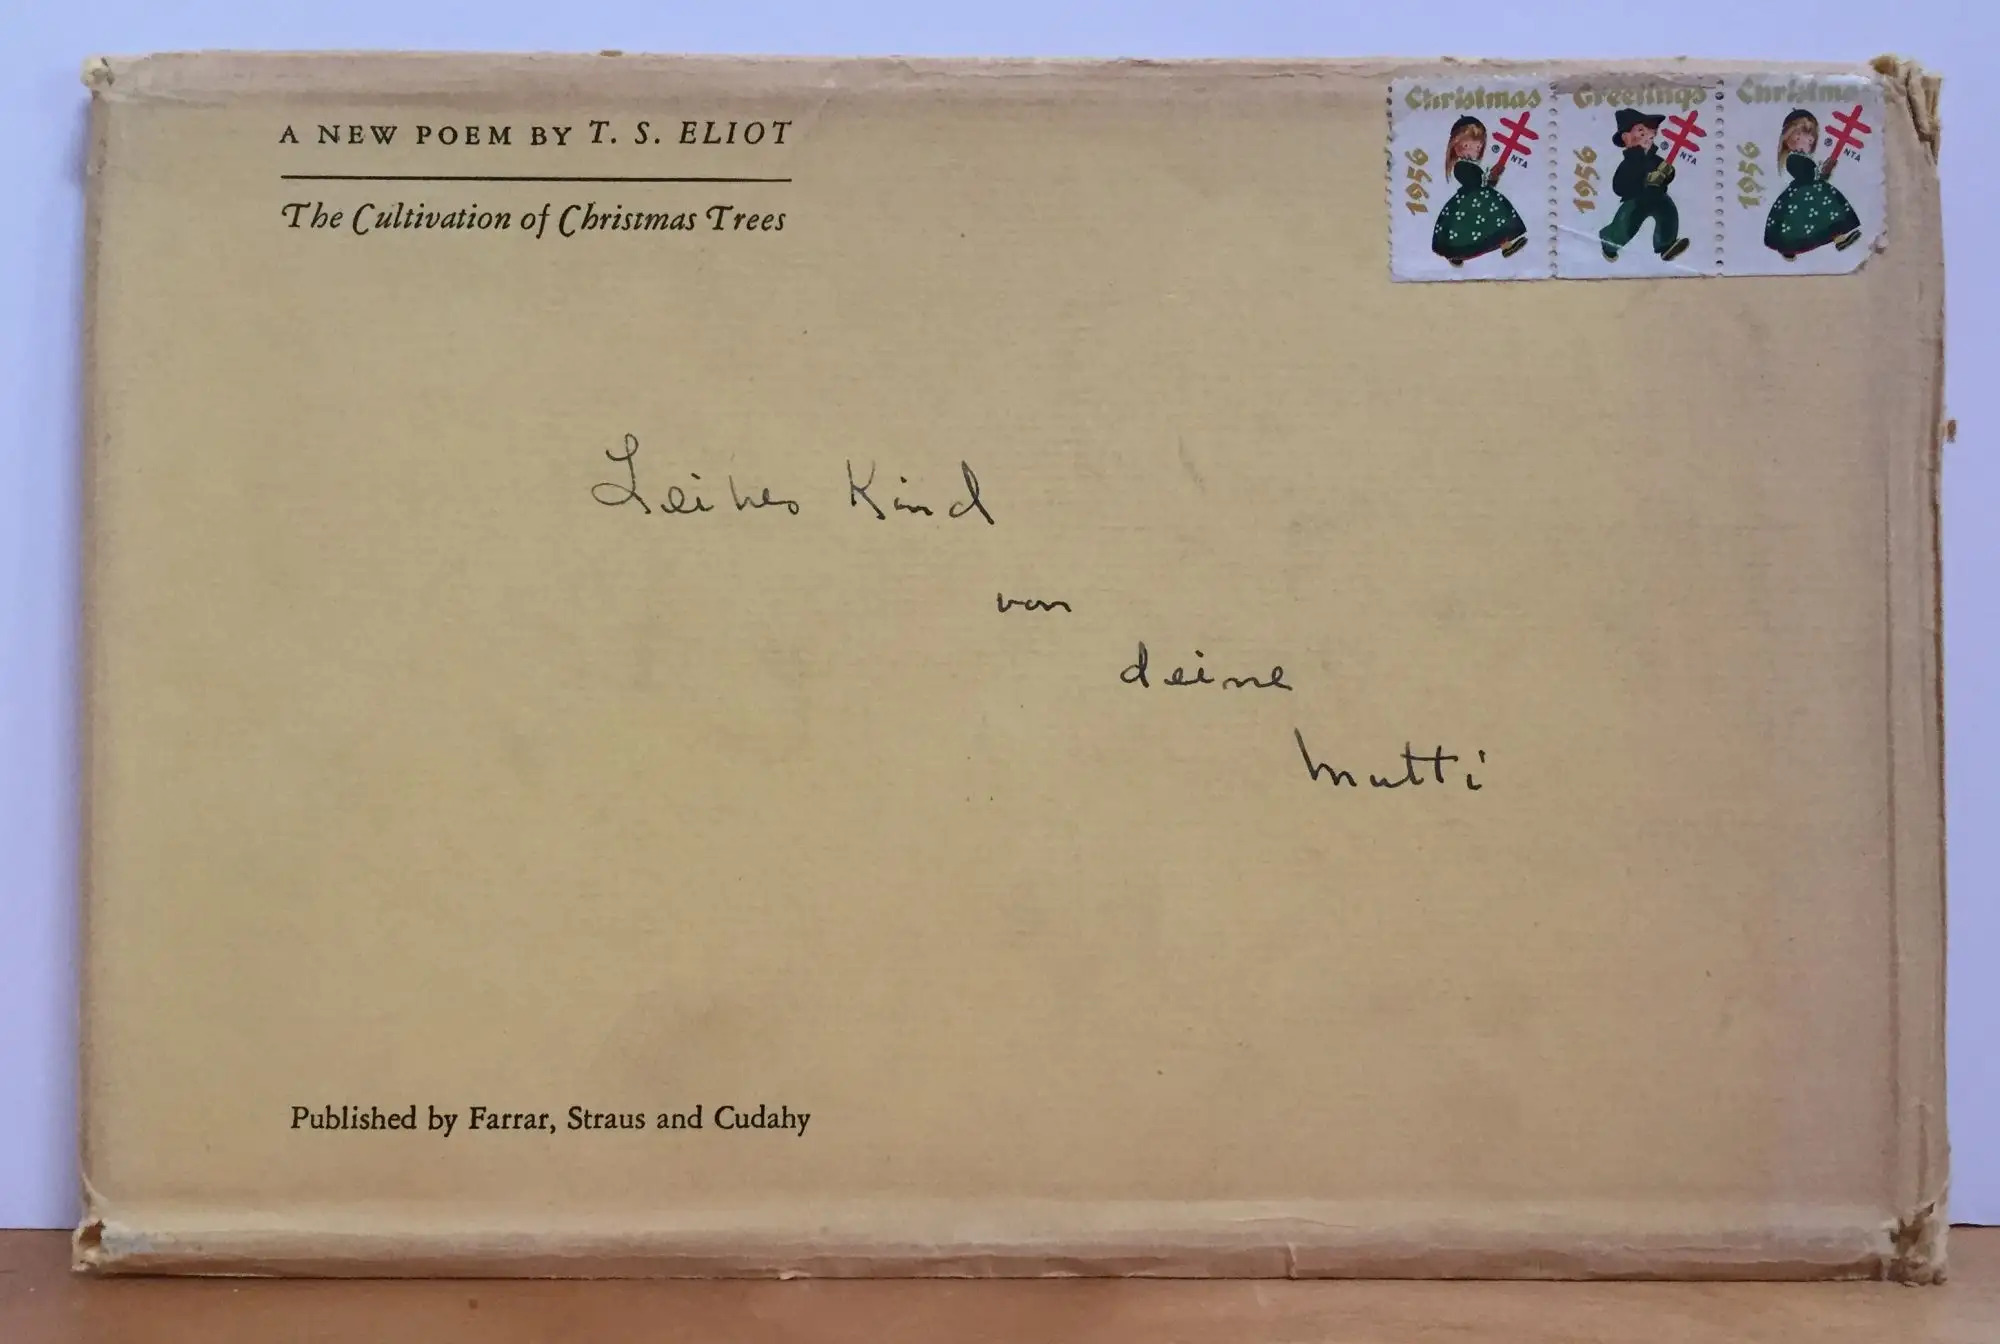 A NEW POEM BY T. S. ELIOT
The Cultivation of Christmas Trees
Christmas Greetings Christmas
1956 1956 1956
® NTA ® NTA ® NTA
Kind
von
deine
Mutti
Published by Farrar, Straus and Cudahy